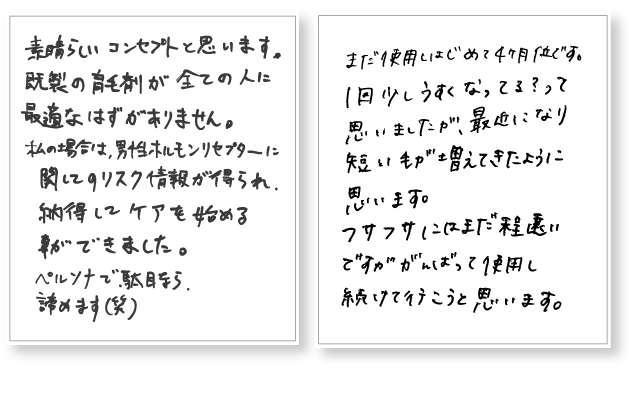 素晴らしいコンセプトと思います。
既製の育毛剤が全ての人に
最適なはずがありません。
私の場合は、男性ホルモンリセプターに
関してのリスク情報が得られ、
納得してケアを始める
事ができました。
ペルソナで駄目なら、
諦めます(笑)
まだ使用しはじめて4ヶ月位です。
1回少しうすくなってる?って
思いましたが、最近になり
短い毛が増えてきたように
思います。
フサフサにはまだ程遠い
ですががんばって使用し
続けて行こうと思います。